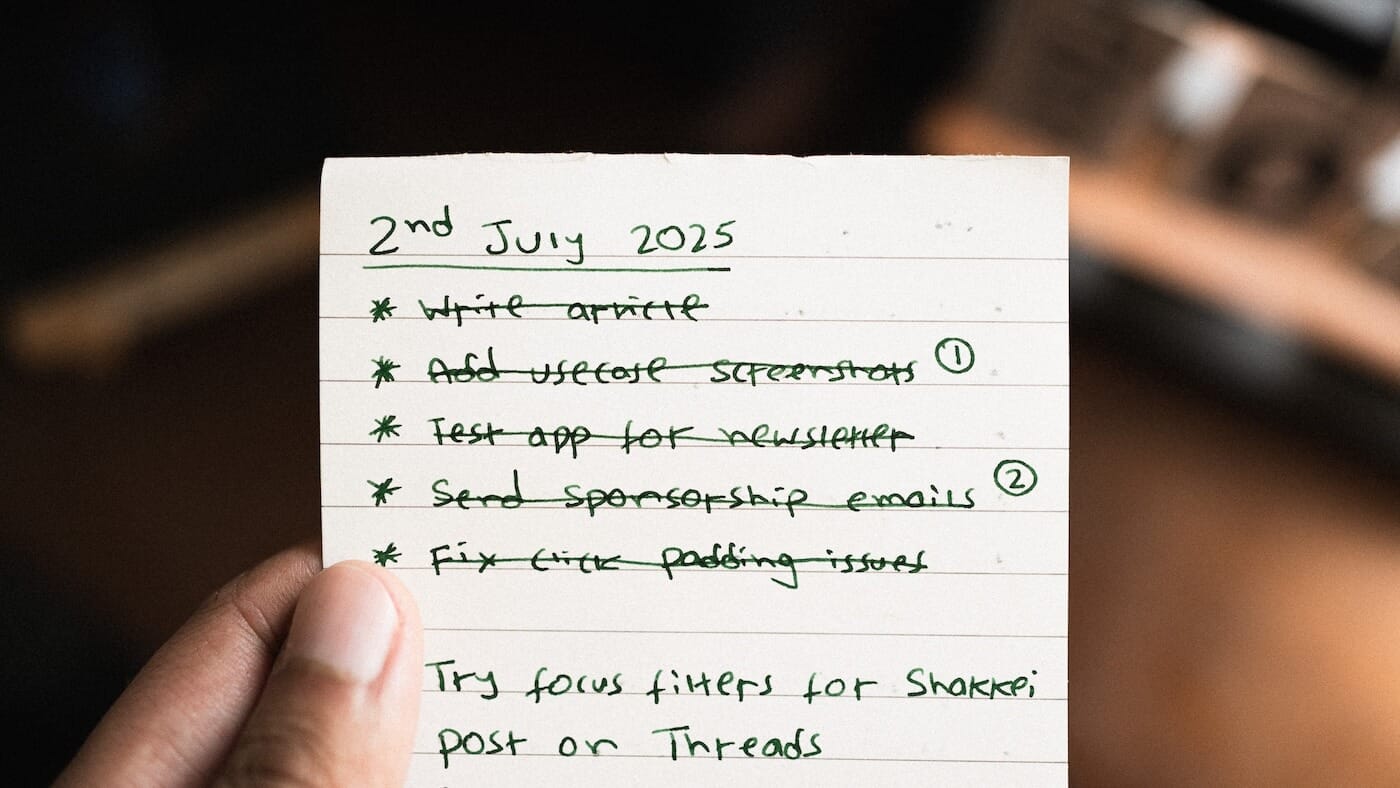 2nd July 2025
* Write article
* Add usecase screenshots ①
* Test app for newsletter
* Send sponsorship emails ②
* Fix click padding issues
Try focus filters for Shakkei
post on Threads